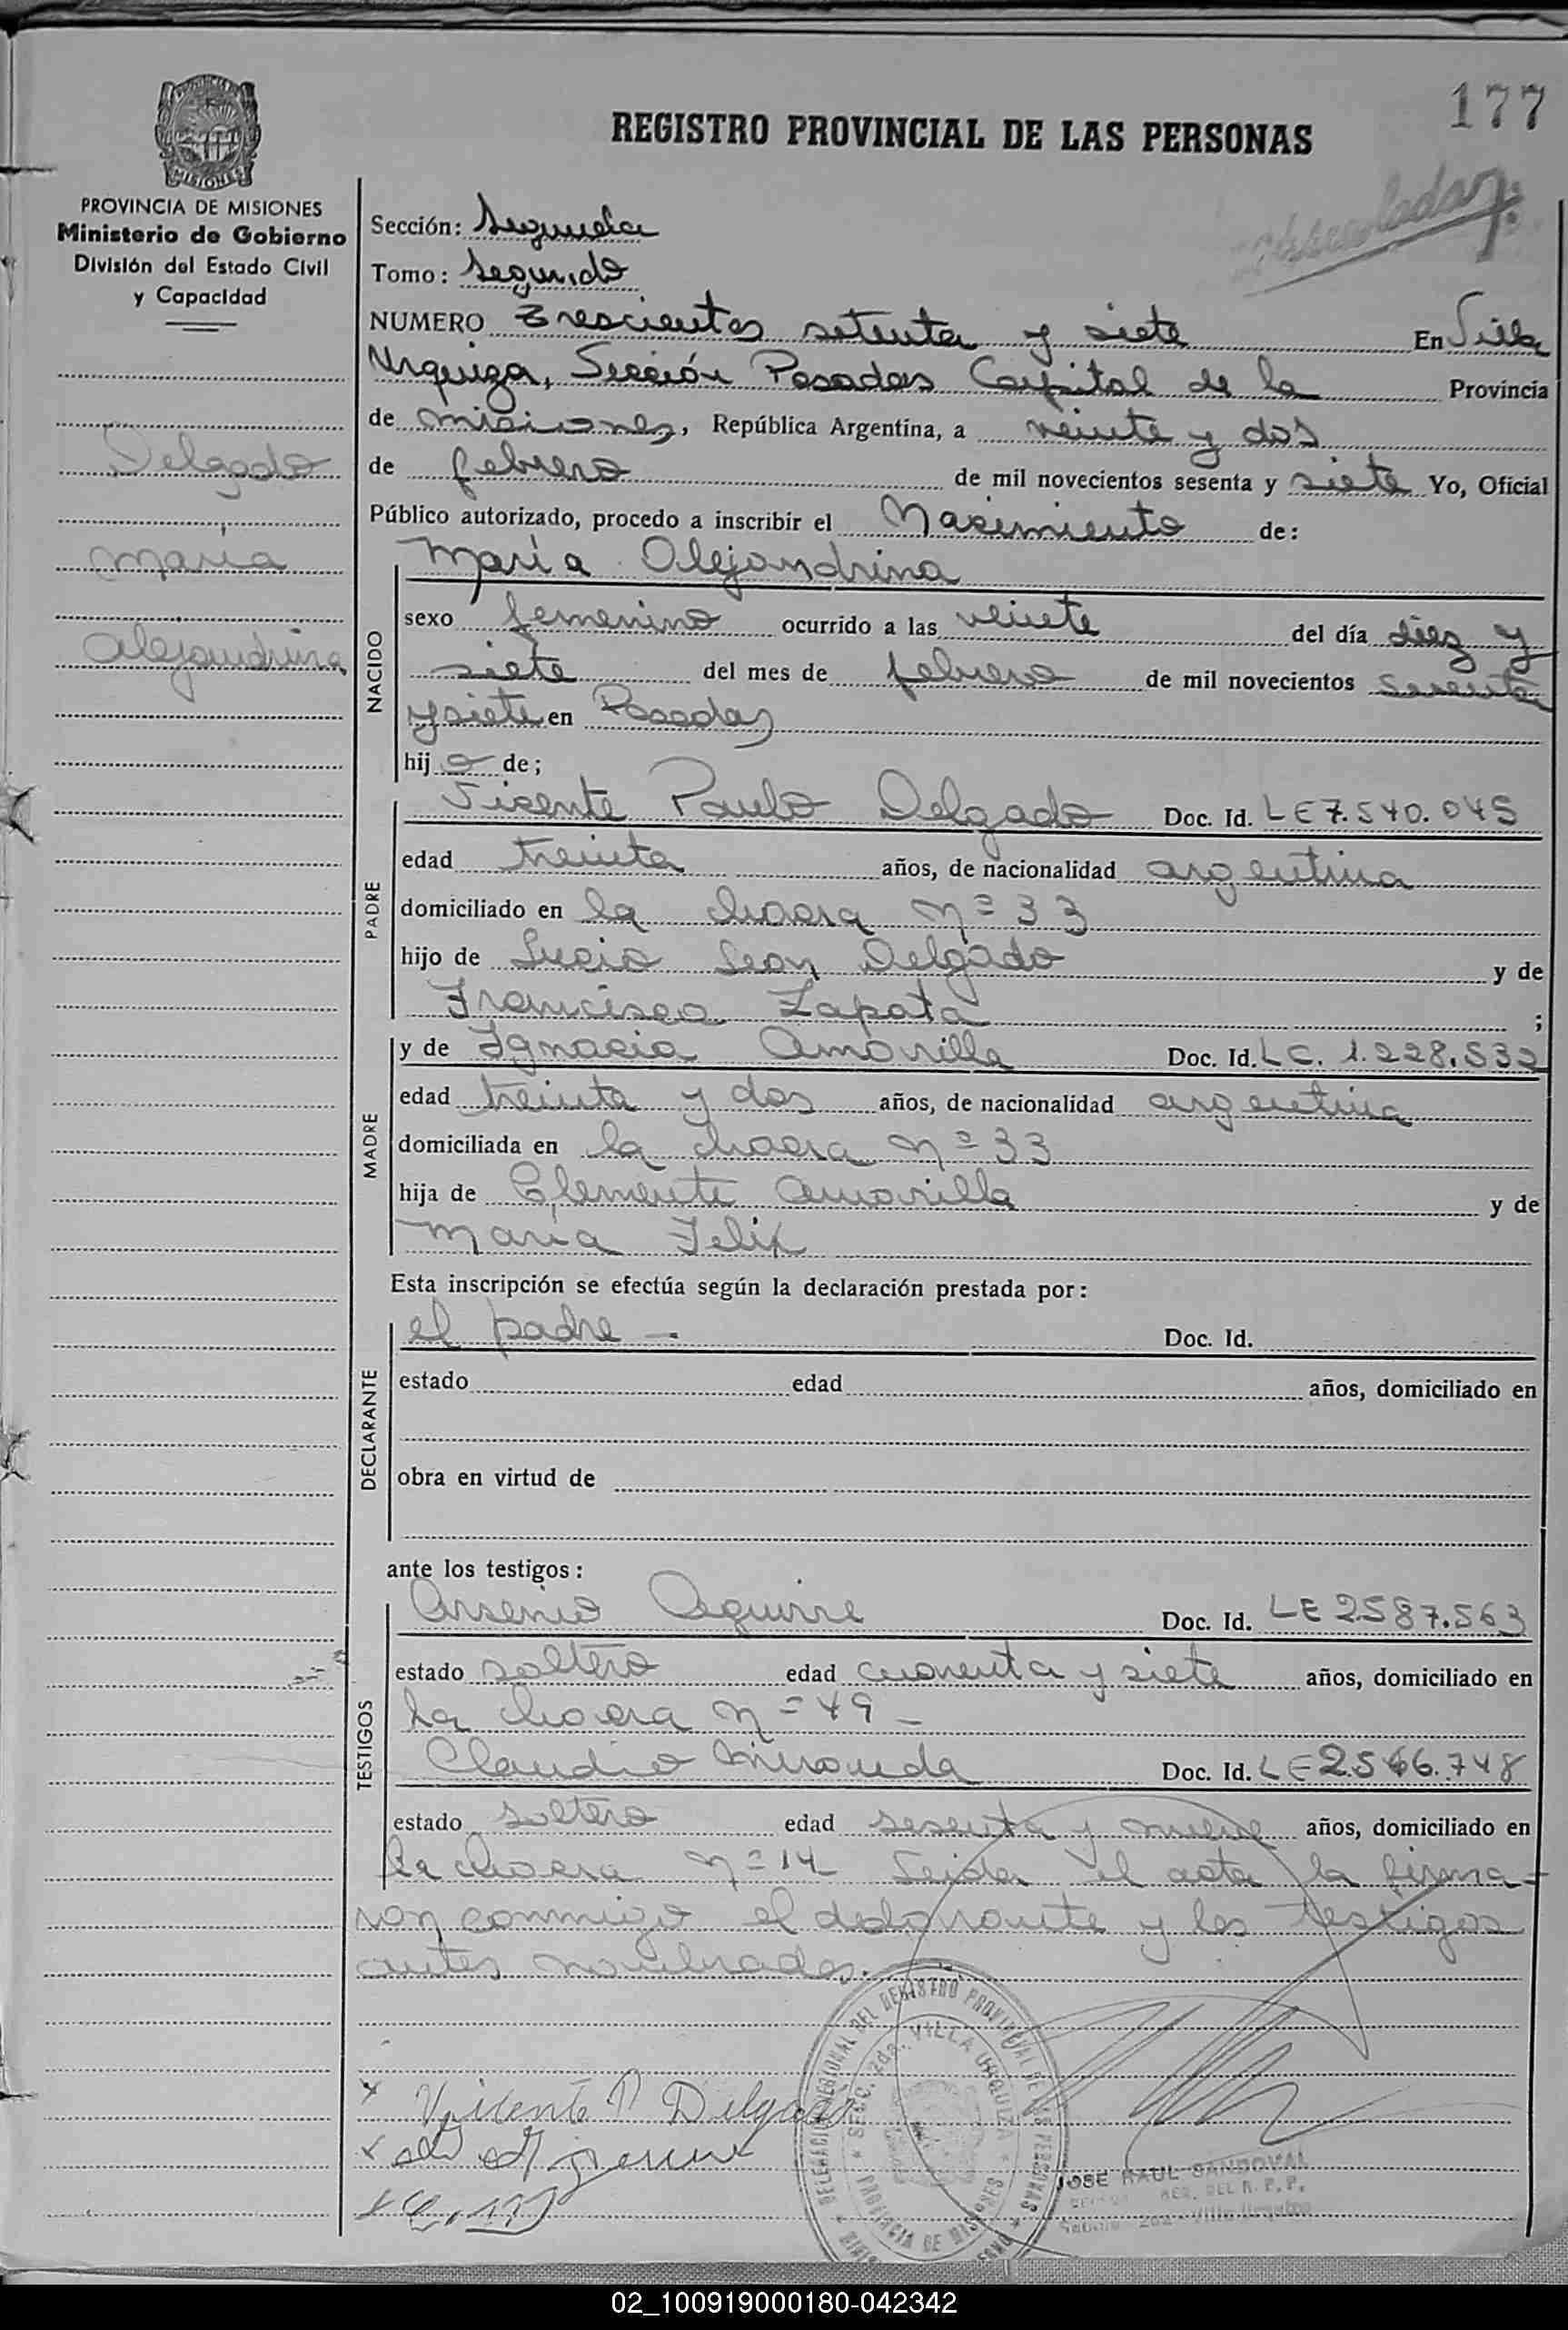 177
REGISTRO PROVINCIAL DE LAS PERSONAS
MISIONES
PROVINCIA DE MISIONES
Ministerio de Gobierno
División del Estado Civil
y Capacidad
Delgado
María
Alejandrina
Sección: Segunda
Tomo: Segundo
NUMERO Trescientos setenta y siete En Villa
Urquiza, Sección Posadas Capital de la Provincia
de Misiones, República Argentina, a veinte y dos
de febrero de mil novecientos sesenta y siete Yo, Oficial
Público autorizado, procedo a inscribir el Nacimiento de:
María Alejandrina
NACIDO
sexo femenino ocurrido a las veinte del día diez y
siete del mes de febrero de mil novecientos sesenta
y siete en Posadas
hij a de;
PADRE
Vicente Paulo Delgado Doc. Id. LE 7.540.045
edad treinta años, de nacionalidad argentina
domiciliado en la chacra nº 33
hijo de Lucio Leon Delgado y de
Francisca Zapata ;
MADRE
y de Ignacia Amarilla Doc. Id. LC. 1.228.532
edad treinta y dos años, de nacionalidad argentina
domiciliada en la chacra nº 33
hija de Clemente Amarilla y de
María Felix
Esta inscripción se efectúa según la declaración prestada por:
DECLARANTE
el padre — Doc. Id.
estado edad años, domiciliado en
obra en virtud de
ante los testigos:
TESTIGOS
Arsenio Aguirre Doc. Id. LE 2587.563
estado soltero edad cuarenta y siete años, domiciliado en
la chacra nº 49 —
Claudio Miranda Doc. Id. LE 2.566.748
estado soltero edad sesenta y nueve años, domiciliado en
la chacra nº 14 Leida el acta la firma-
ron conmigo el declarante y los testigos
antes nombrados.
DELEGACION REGIONAL DEL REGISTRO PROVINCIAL DE LAS PERSONAS
SECC. 2da. VILLA URQUIZA
PROVINCIA DE MISIONES
x Vicente P Delgado
JOSE RAUL SANDOVAL
REG. DEL R. P. P.
Villa Urquiza
02_100919000180-042342